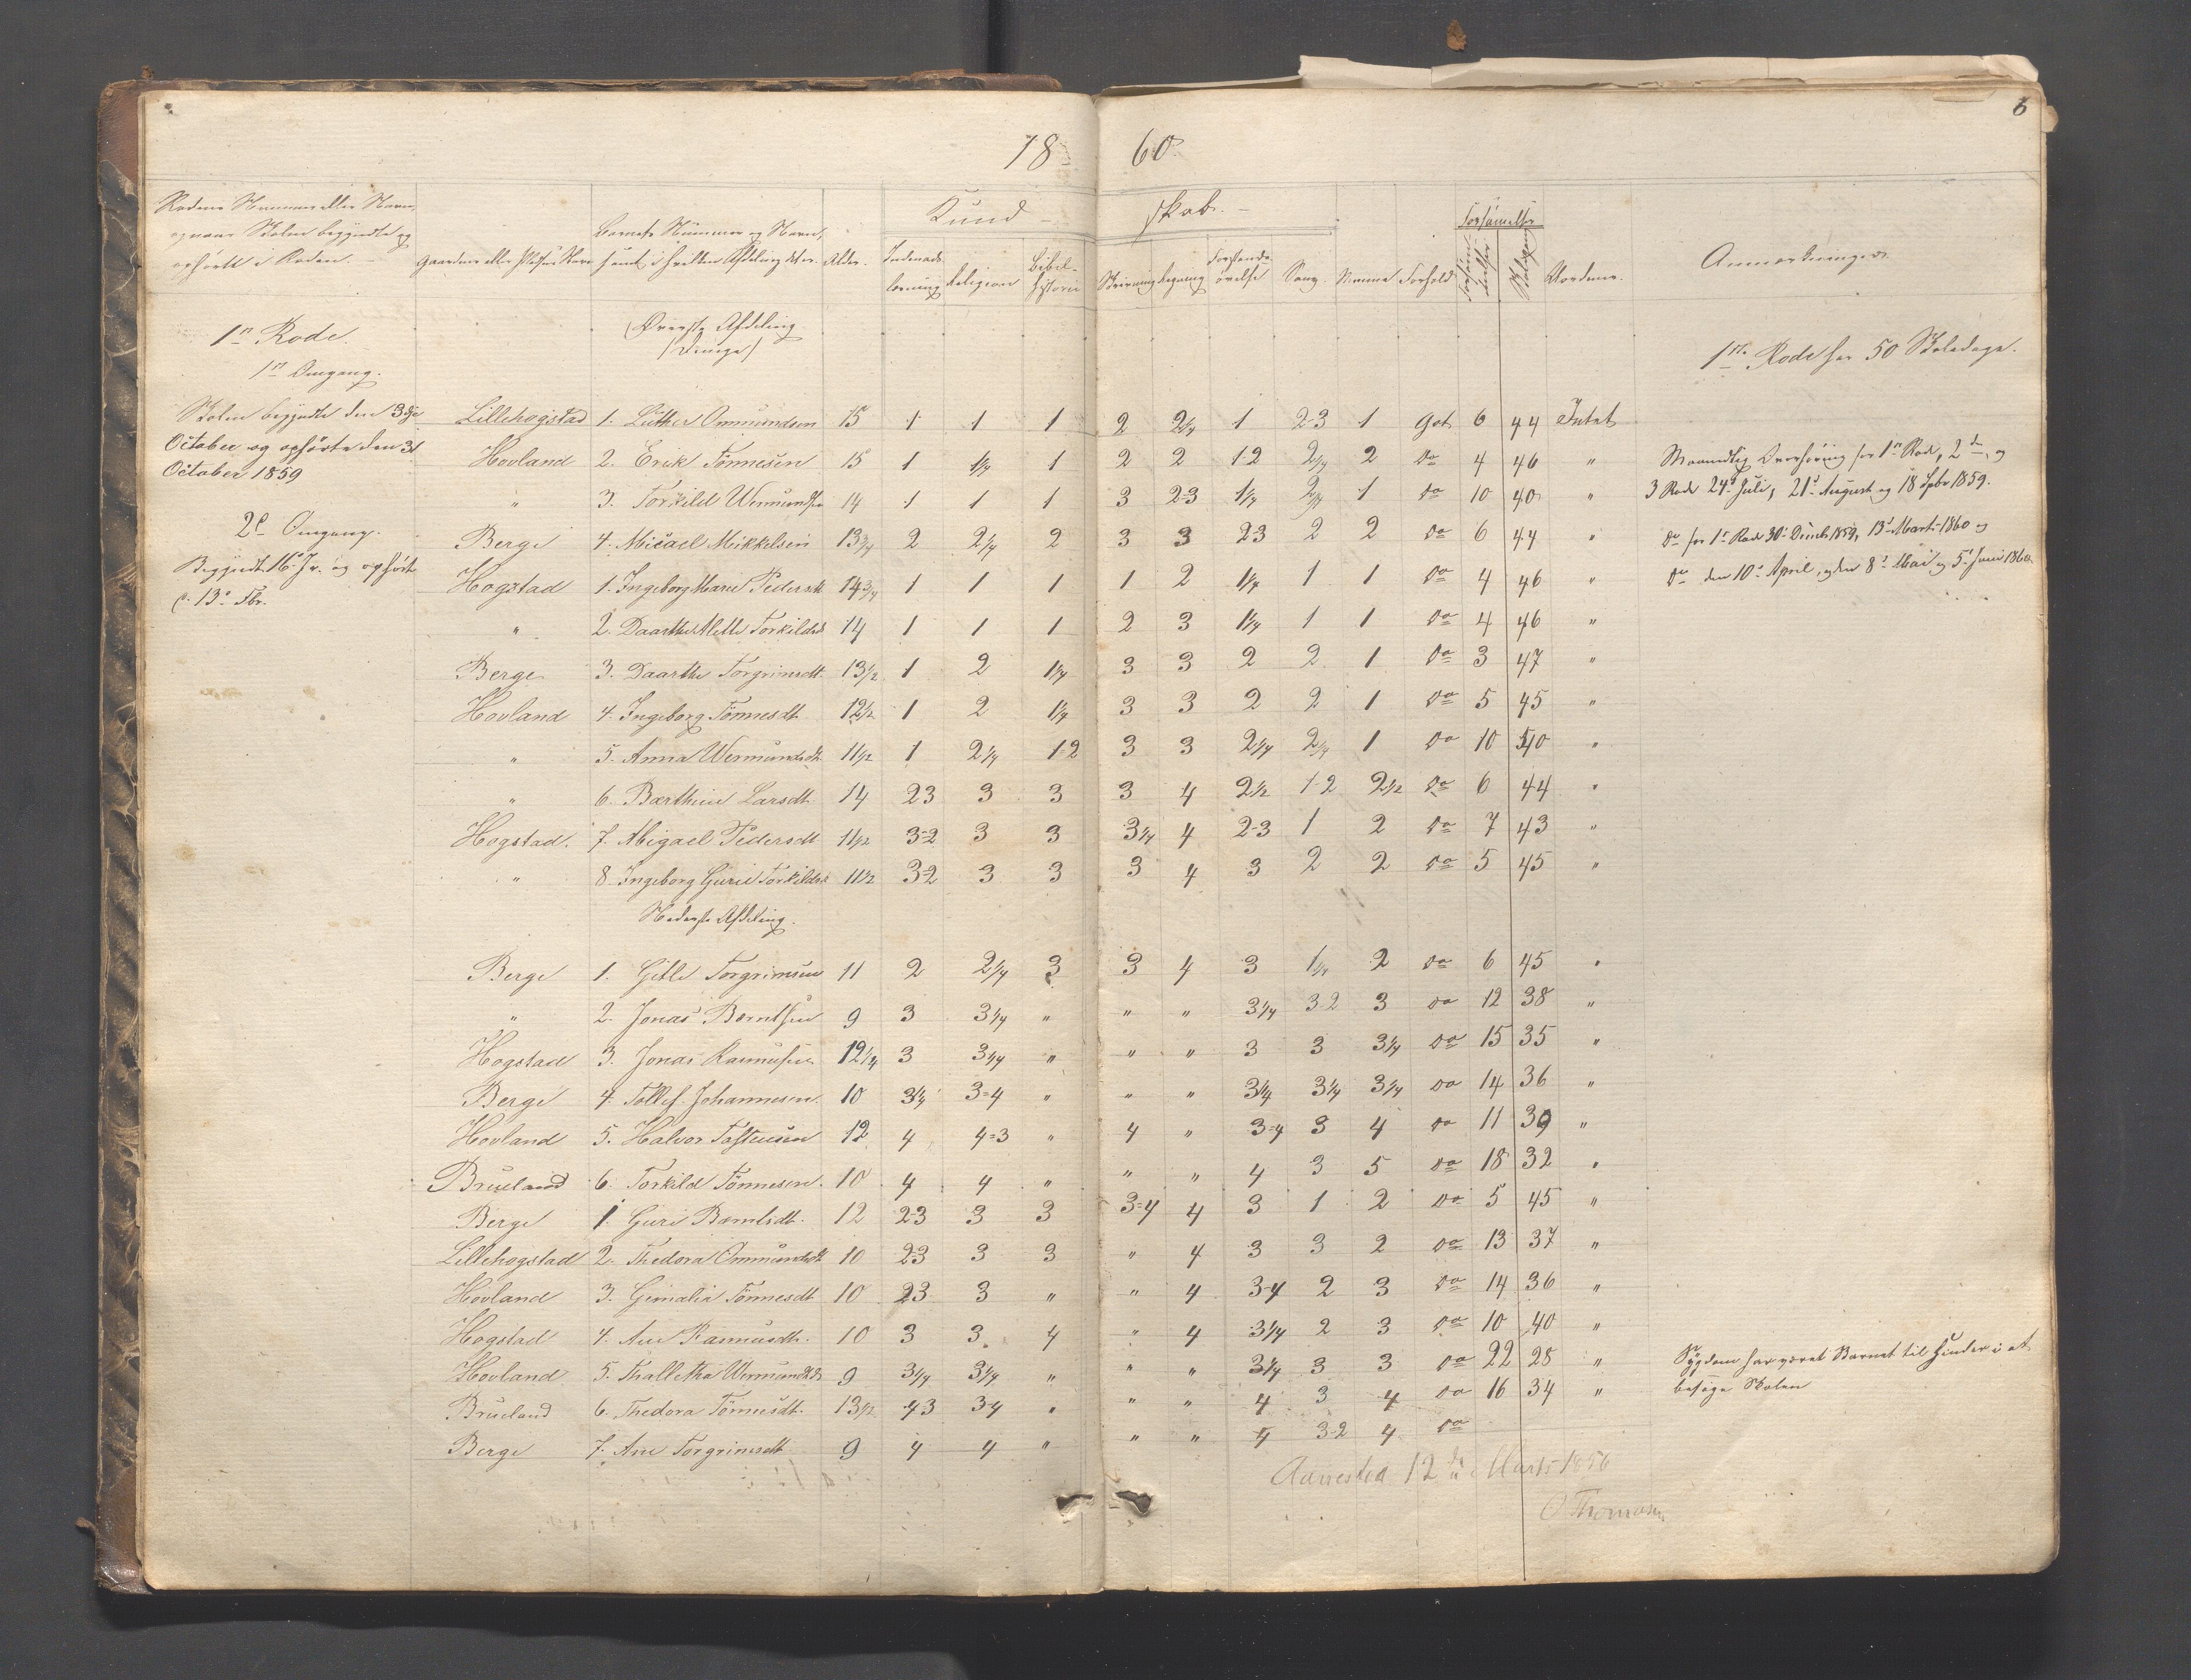 6
18 60
Rodens Nummer eller Navn,
og naar Skolen begyndte og
ophørte i Roden.
Gaardens eller Pladsens Navn
Barnets Nummer og Navn,
samt i hvilken Afdeling det er.
Alder.
Kund skab.
Indenads Læsning
Religion
Bibel-historie
Skrivning
Regning
Forstands-øvelse
Sang.
Nemme
Forhold
Forsømmelse
Skolegang
Vordener.
Anmærkninger.
1ste Rode.
1ste Omgang.
Øverste Afdeling
/Drenge/
1ste Rode har 50 Skoledage.
Skolen begyndte den 3die
October og ophørte den 31
October 1859
2den Omgang.
Begyndt 16de Jr. og ophørt
d. 13de Fbr.
Lillehogstad 1. Luther Ommundsen 15 1 1 1 2 2 1/4 1 2-3 1 Got 6 44 Intet
Hovland 2. Erik Tönnesen 15 1 1 1/4 1 2 2 1-2 2 1/4 2 Do 4 46 "
" 3. Torkild Wermundsen 14 1 1 1 3 2-3 1 1/4 2 1/4 1 Do 10 40 "
Berge 4. Micael Mikkelsen 13 3/4 2 2 1/4 2 3 3 2-3 2 2 Do 6 44 "
Hogstad 1. Ingeborg Marie Pedersdt 14 3/4 1 1 1 1 2 1 1/4 1 1 Do 4 46 "
" 2. Daarthe Alette Torkildsdt 14 1 1 1 2 3 1 1/4 1 1 Do 4 46 "
Berge 3. Daarthe Torgrimsdt 13 1/2 1 2 1 1/4 3 3 2 2 1 Do 3 47 "
Hovland 4. Ingeborg Tönnesdt 12 1/2 1 2 1 1/4 3 3 2 2 1 Do 5 45 "
" 5. Anna Wermundsdt 11 1/2 1 2 1/4 1-2 3 3 2 1/4 2 1/4 1 Do 10 40 "
" 6. Barthine Larsdt. 14 2-3 3 3 3 4 2 1/2 1-2 2 1/2 Do 6 44 "
Hogstad. 7. Abigael Pedersdt 11 1/2 3-2 3 3 3 1/4 4 2-3 1 2 Do 7 43 "
" 8. Ingeborg Gurie Torkildsdt 11 1/2 3-2 3 3 3 4 3 2 2 Do 5 45 "
Maanedlig Overhøring for 1ste Rode, 2den og
3 Rode 24de Juli, 21de August og 18 Spbr 1859.
Do for 1ste Rode 30te Decmb 1859, 13de Marts 1860 og
Do den 10de April, og den 8de Mai og 5te Juni 1860.
Nederste Afdeling.
Berge 1. Gitle Torgrimsen 11 2 2 1/4 3 3 4 3 1 1/4 2 Do 6 45 "
" 2. Jonas Berntsen 9 3 3 1/4 " " " 3 1/4 3-2 3 Do 12 38 "
Hogstad 3. Jonas Rasmussen 12 1/4 3 3 1/4 " " " 3 3 3 1/4 Do 15 35 "
Berge 4. Tollef Johannesen. 10 3 1/4 3-4 " " " 3 1/4 3 1/4 3 1/4 Do 14 36 "
Hovland 5. Halvor Tostensen 12 4 4-3 " 4 " 3-4 3 4 Do 11 39 "
Brueland 6. Torkild Tönnesen. 10 4 4 " " " 4 3 5 Do 18 32 "
Berge 1. Guri Berntsdt. 12 2-3 3 3 3-4 4 3 1 2 Do 5 45 "
Lillehogstad 2. Thedora Ommundsdt 10 2-3 3 3 " 4 3 3 2 Do 13 37 "
Hovland 3. Gimalia Tönnesdt 10 2-3 3 " " 4 3-4 2 3 Do 14 36 "
Hogstad 4. Ane Rasmusdt. 10 3 3 4 " 4 3 1/4 2 3 Do 10 40 "
Hovland 5. Thalletha Wermundsdt 9 3 1/4 3 1/4 " " " 3 1/4 3 3 Do 22 28 "
Brueland 6. Thedora Tönnesdt. 13 1/2 4-3 3-4 " " " 4 3 4 Do 16 34 "
Berge 7. Ane Torgrimsdt 9 4 4 " " " 4 3-2 4 Do
Sygdom har været Barnet til Hinder i at
besøge Skolen
Aarrestad 12te Marts 1856
O Thomasen